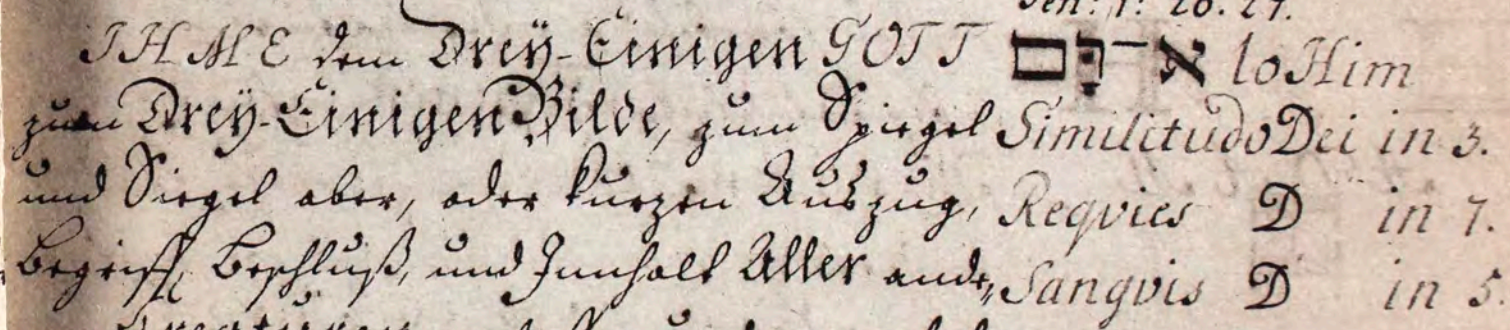 Gen: 1: 26. 27.
IHME dem Dreÿ-Einigen GOTT א־דָם loHim
zum Dreÿ-Einigen Bilde, zum Spiegel Similitudo Dei in 3.
und Siegel aber, oder kurzen Auszug, Reqvies D in 7.
Begriff, Beschluß, und Innhalt Aller ande, Sangvis D in 5.
Creaturen